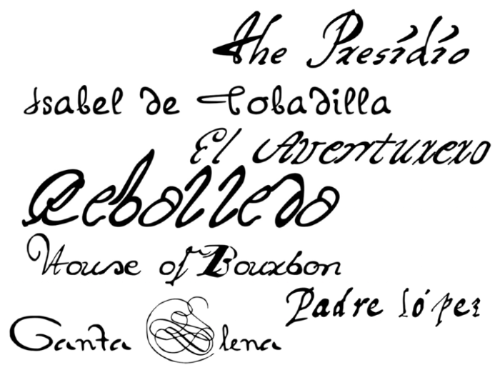 The Presídío
Isabel de Tobadilla
El Aventurero
Rebolledo
House of Bourbon
Padre López
Santa Elena